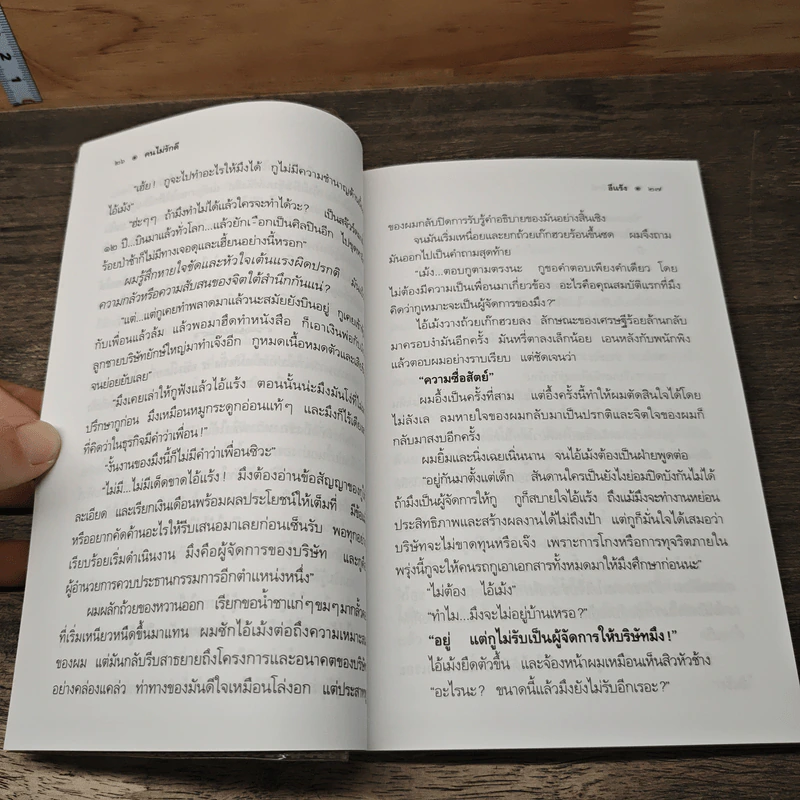 ๒๖ ● คนไม่รักดี
"เฮ้ย! กูจะไปทำอะไรให้มึงได้ กูไม่มีความชำนาญด้าน
ไอ้เม้ง"
"ฮะๆๆ ถ้ามึงทำไม่ได้แล้วใครจะทำได้วะ?
๑๒ ปี...บินมาแล้วทั่วโลก...แล้วยัก
ร้อยป่าช้าก็ไม่มีทางเจอดุและเฮี้ยนอย่างนี้หรอก"
ผมรู้สึกหายใจขัดและหัวใจเต้นแรงผิดปรกติ
ความกลัวหรือความสับสนของจิตใต้สำนึกกันแน่?
"แต่...แต่กูเคยทำพลาดมาแล้วนะสมัยยังบินอยู่ กูเคย
กับเพื่อนแล้วล้ม แล้วพอมาฮึดทำหนังสือ ก็เอาเงินพ่อ
ลูกชายบริษัทยักษ์ใหญ่มาทำเจ๊งอีก กูหมดเนื้อหมดตัวและ
จนย่อยยับเลย"
"มึงเคยเล่าให้กูฟังแล้วไอ้แร้ง ตอนนั้นน่ะมึงมันโง่ที่ไม่
ปรึกษากูก่อน มึงเหมือนหมูกระดูกอ่อนแท้ๆ และมึงก็ไร้เดียงสา
ที่คิดว่าในธุรกิจมีคำว่าเพื่อน!"
"งั้นงานของมึงนี้ก็ไม่มีคำว่าเพื่อนซิวะ"
"ไม่มี...ไม่มีเด็ดขาดไอ้แร้ง! มึงต้องอ่านข้อสัญญาของ
ละเอียด และเรียกเงินเดือนพร้อมผลประโยชน์ให้เต็มที่
หรืออยากคัดค้านอะไรให้รีบเสนอมาเลยก่อนเซ็นรับ
เรียบร้อยเริ่มดำเนินงาน มึงคือผู้จัดการของบริษัท และกูคือ
ผู้อำนวยการควบประธานกรรมการอีกตำแหน่งหนึ่ง"
ผมผลักถ้วยของหวานออก เรียกขอน้ำชาแก่ๆขมๆมากลั้ว
ที่เริ่มเหนียวหนืดขึ้นมาแทน ผมซักไอ้เม้งต่อถึงความเหมาะสม
ของผม แต่มันกลับรีบสาธยายถึงโครงการและอนาคตของบริษัท
อย่างคล่องแคล่ว ท่าทางของมันดีใจเหมือนโล่งอก แต่ประสาท
อีแร้ง ● ๒๗
ของผมกลับปิดการรับรู้คำอธิบายของมันอย่างสิ้นเชิง
จนมันเริ่มเหนื่อยและยกถ้วยเก๊กฮวยร้อนขึ้นซด ผมจึงถาม
มันออกไปเป็นคำถามสุดท้าย
"เม้ง...ตอบกูตามตรงนะ กูขอคำตอบเพียงคำเดียว โดย
ไม่ต้องมีความเป็นเพื่อนมาเกี่ยวข้อง อะไรคือคุณสมบัติแรกที่มึง
คิดว่ากูเหมาะจะเป็นผู้จัดการของมึง?"
ไอ้เม้งวางถ้วยเก๊กฮวยลง ลักษณะของเศรษฐีร้อยล้านกลับ
มาครอบงำมันอีกครั้ง มันหรี่ตาลงเล็กน้อย เอนหลังกับพนักพิง
แล้วตอบผมอย่างราบเรียบ แต่ชัดเจนว่า
"ความซื่อสัตย์"
ผมอึ้งเป็นครั้งที่สาม แต่อึ้งครั้งนี้ทำให้ผมตัดสินใจได้โดย
ไม่ลังเล ลมหายใจของผมกลับมาเป็นปรกติและจิตใจของผมก็
กลับมาสงบอีกครั้ง
ผมยิ้มและนิ่งเฉยเนิ่นนาน จนไอ้เม้งต้องเป็นฝ่ายพูดต่อ
"อยู่กันมาตั้งแต่เด็ก สันดานใครเป็นยังไงย่อมปิดบังกันไม่ได้
ถ้ามึงเป็นผู้จัดการให้กู กูก็สบายใจไอ้แร้ง ถึงแม้มึงจะทำงานหย่อน
ประสิทธิภาพและสร้างผลงานได้ไม่ถึงเป้า แต่กูก็มั่นใจได้เสมอว่า
บริษัทจะไม่ขาดทุนหรือเจ๊ง เพราะการโกงหรือการทุจริตภายใน
พรุ่งนี้กูจะให้คนรถกูเอาเอกสารทั้งหมดมาให้มึงศึกษาก่อนนะ"
"ไม่ต้อง ไอ้เม้ง"
"ทำไม...มึงจะไม่อยู่บ้านเหรอ?"
"อยู่ แต่กูไม่รับเป็นผู้จัดการให้บริษัทมึง!"
ไอ้เม้งยืดตัวขึ้น และจ้องหน้าผมเหมือนเห็นสิวหัวช้าง
"อะไรนะ? ขนาดนี้แล้วมึงยังไม่รับอีกเรอะ?"
2
1